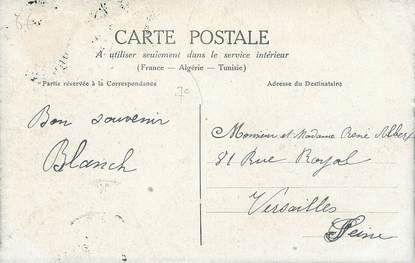 CARTE POSTALE
A utiliser seulement dans le service intérieur
(France — Algérie — Tunisie)
Partie réservée à la Correspondance
Adresse du Destinataire
70
Bon souvenir
Blanch
Monsieur et Madame René Albert
81 Rue Royal
Versailles
Seine